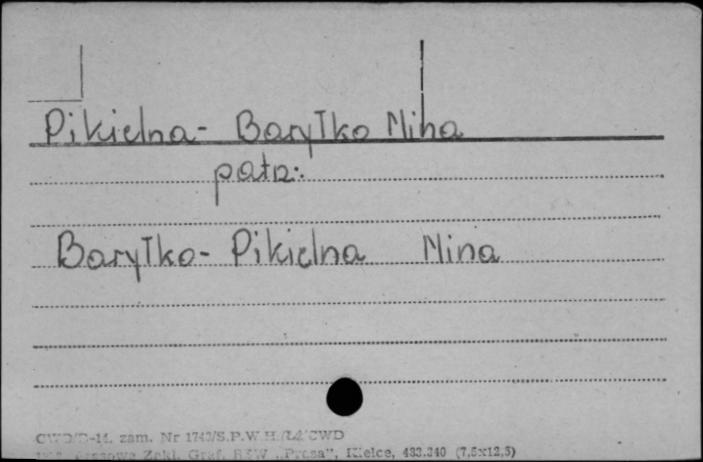 Pikielna- Baryłko Nina
patrz:
Baryłko- Pikielna Nina
CWD/D-14. zam. Nr 1743/S.P.W.H./Ł4/CWD
Zakl. Graf. RSW „Prasa", Kielce, 433.340 (7,5x12,5)